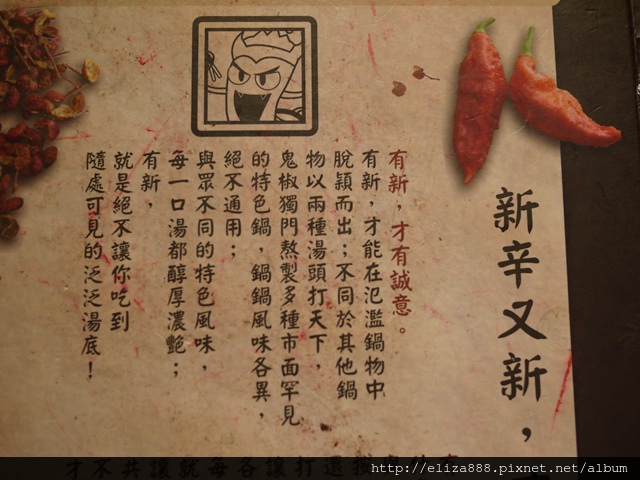 新辛又新，
有新，才有誠意。
有新，才能在氾濫鍋物中
脫穎而出；不同於其他鍋
物以兩種湯頭打天下，
鬼椒獨門熬製多種市面罕見
的特色鍋，鍋鍋風味各異，
絕不通用；
與眾不同的特色風味，
每一口湯都醇厚濃艷；
有新，
就是絕不讓你吃到
隨處可見的泛泛湯底！
http://eliza888.pixnet.net/album